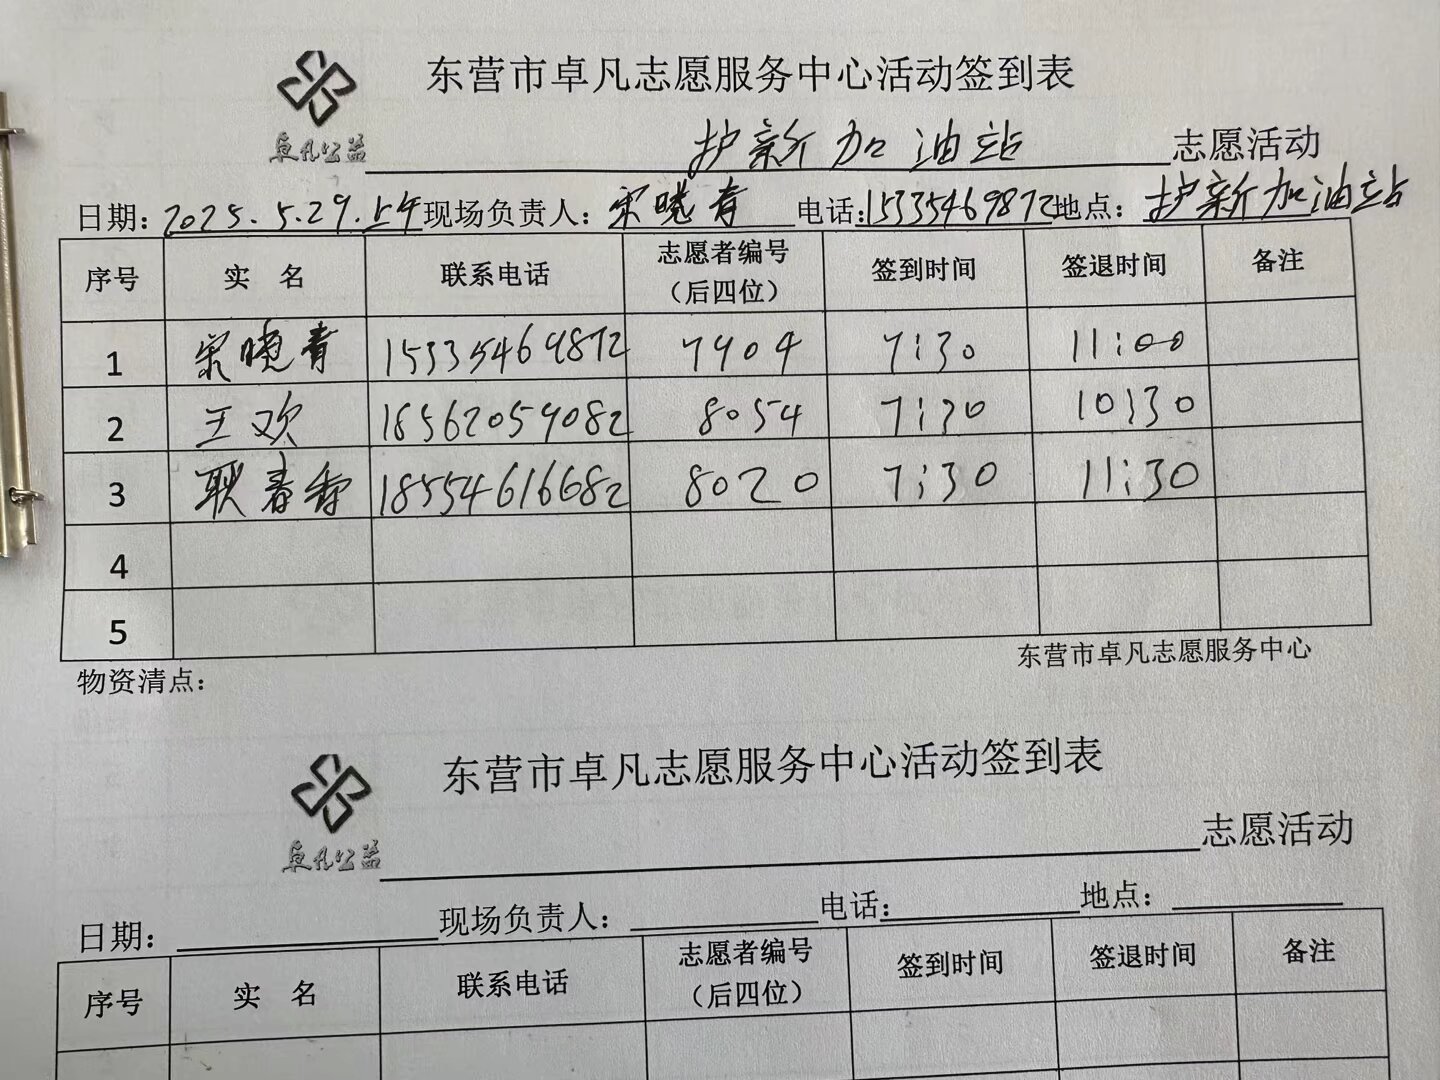 东营市卓凡志愿服务中心活动签到表
卓凡公益
护新加油站 志愿活动
日期：2025.5.29.上午 现场负责人：宋晓青 电话：15335469872 地点：护新加油站
序号 实 名 联系电话 志愿者编号（后四位） 签到时间 签退时间 备注
1 宋晓青 15335469872 7904 7:30 11:00
2 王欢 18562059082 8054 7:30 10:30
3 耿春香 18554616682 8020 7:30 11:30
4
5
东营市卓凡志愿服务中心
物资清点：
东营市卓凡志愿服务中心活动签到表
卓凡公益
志愿活动
日期： 现场负责人： 电话： 地点：
序号 实 名 联系电话 志愿者编号（后四位） 签到时间 签退时间 备注